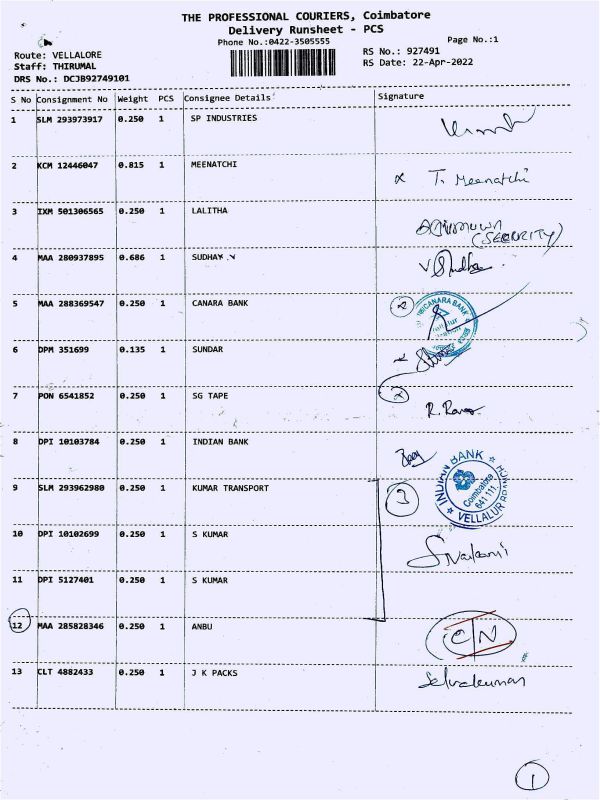 THE PROFESSIONAL COURIERS, Coimbatore
Delivery Runsheet - PCS
Phone No.:0422-3505555
Page No.:1
Route: VELLALORE
RS No.: 927491
Staff: THIRUMAL
RS Date: 22-Apr-2022
DRS No.: DCJB92749101
S No Consignment No Weight PCS Consignee Details Signature
1 SLM 293973917 0.250 1 SP INDUSTRIES
2 KCM 12446047 0.815 1 MEENATCHI T. Meenatchi
3 IXM 501306565 0.250 1 LALITHA
(SECURITY)
4 MAA 280937895 0.686 1 SUDHAV.V V Sudha
5 MAA 288369547 0.250 1 CANARA BANK CANARA BANK
6 DPM 351699 0.135 1 SUNDAR
7 PON 6541852 0.250 1 SG TAPE 2
8 DPI 10103784 0.250 1 INDIAN BANK INDIAN BANK
Coimbatore
641 111.
VELLALUR
9 SLM 293962980 0.250 1 KUMAR TRANSPORT 3
10 DPI 10102699 0.250 1 S KUMAR
11 DPI 5127401 0.250 1 S KUMAR
12 MAA 285828346 0.250 1 ANBU C/N
13 CLT 4882433 0.250 1 J K PACKS Selvakumar
1